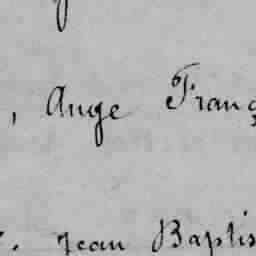 , Ange Franç
. Jean Baptis